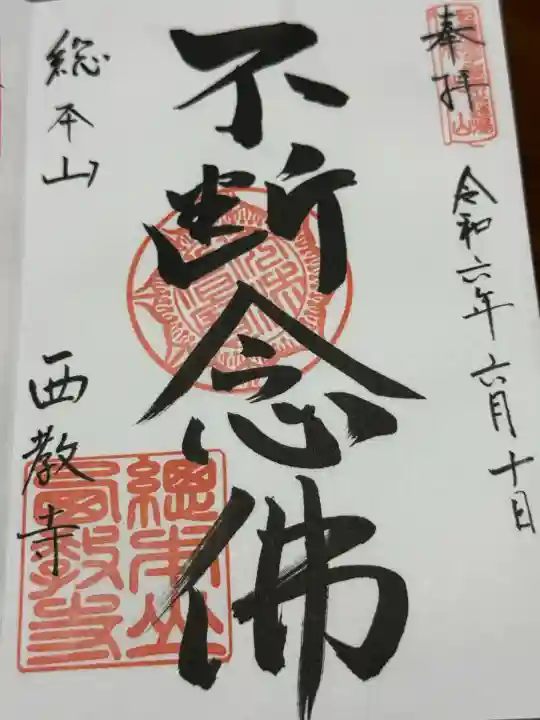 奉拝
令和六年六月十日
不断念佛
総本山
西教寺
總本山
西教寺